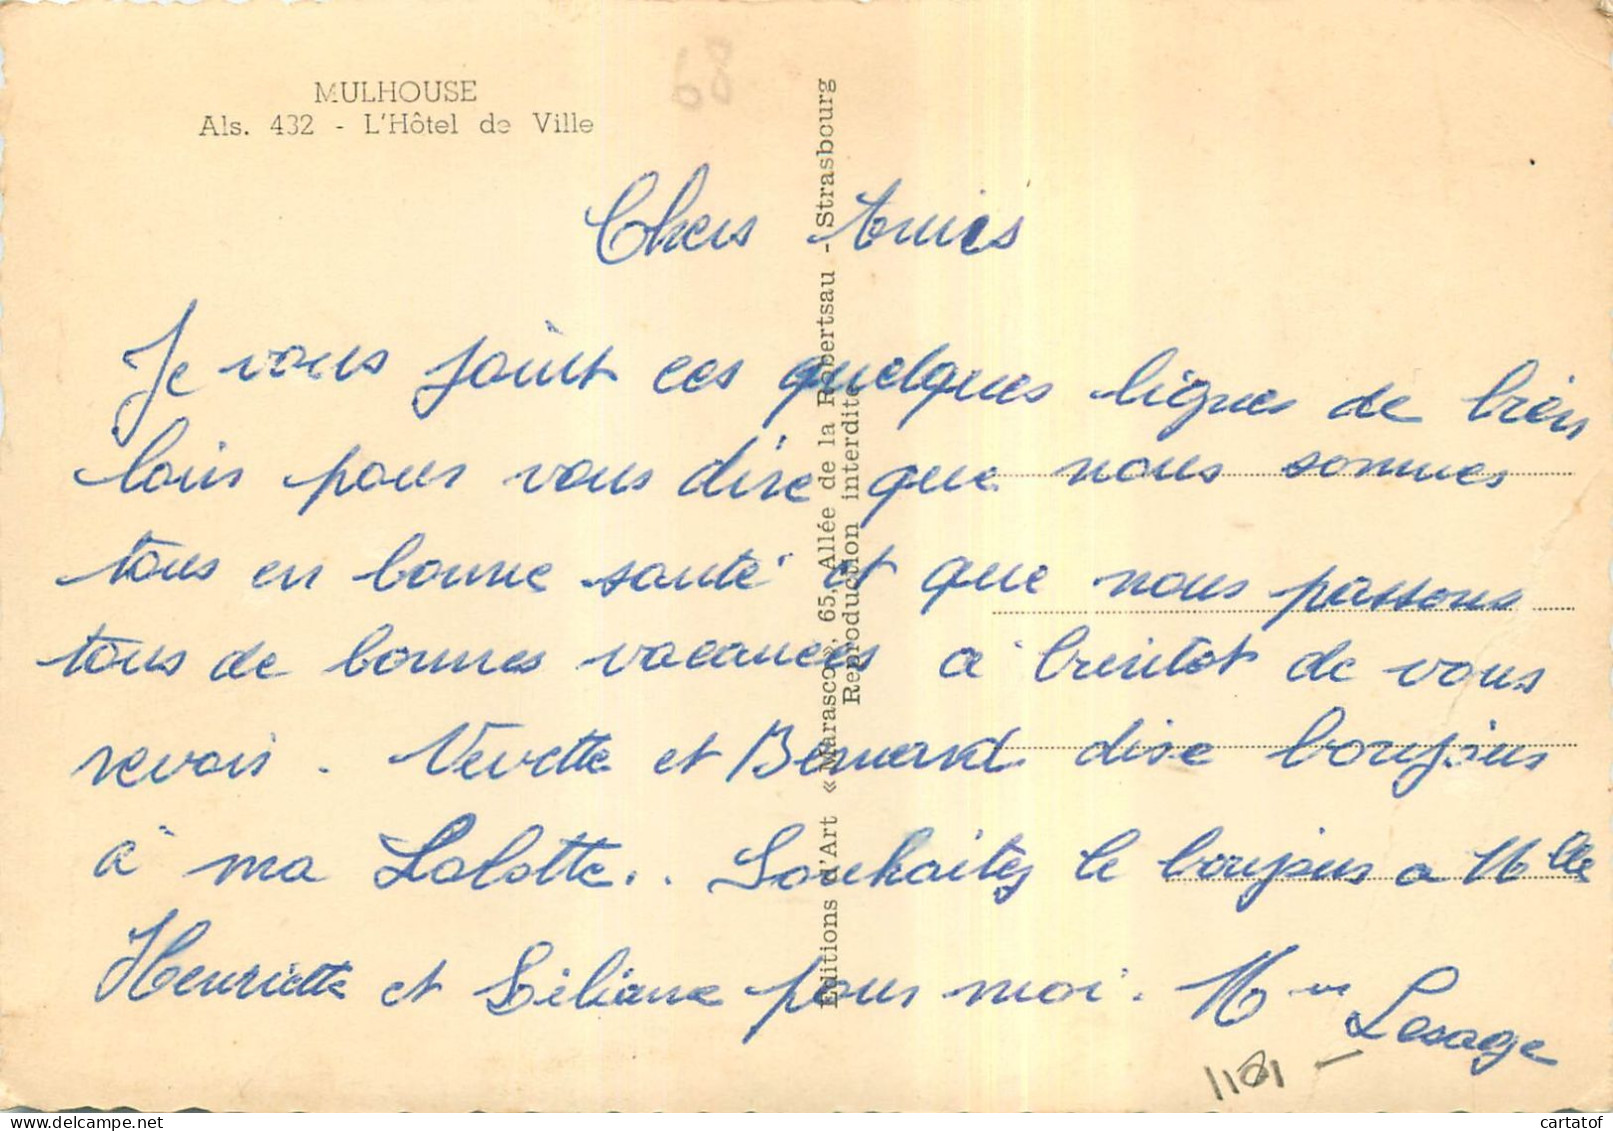 68
MULHOUSE
Als. 432 - L'Hôtel de Ville
Chers Amis
Je vous joint ces quelques lignes de bien
loin pour vous dire que nous sommes
tous en bonne santé et que nous passons
tous de bonnes vacances a bientot de vous
revoir. Vevette et Bernard dise boujour
à ma Lolotte.. Souhaitez le boujour a Mlle
Henriette et Liliane pour moi. Mme
Lesage
Editions d'Art « Marasco », 65, Allée de la Robertsau - Strasbourg
Reproduction interdite
cartatof